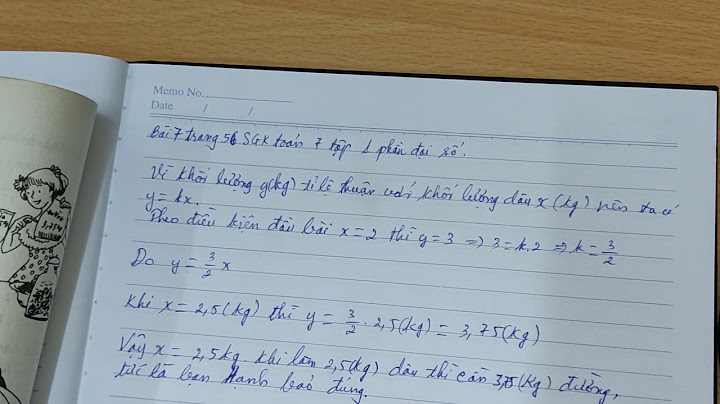 Memo No.
Date / /
Bài 7 trang 56 SGK toán 7 tập 1 phần đại số.
Vì khối lượng y(kg) tỉ lệ thuận với khối lượng dâu x (kg) nên ta có
y = kx.
Theo điều kiện đầu bài x = 2 thì y = 3 => 3 = k.2 => k = 3/2
Do y = 3/2 x
Khi x = 2,5 (kg) thì y = 3/2 . 2,5 (kg) = 3,75 (kg)
Vậy x = 2,5 kg khi làm 2,5 (kg) dâu thì cần 3,75 (kg) đường,
tức là bạn Hạnh bảo đúng.
3,75